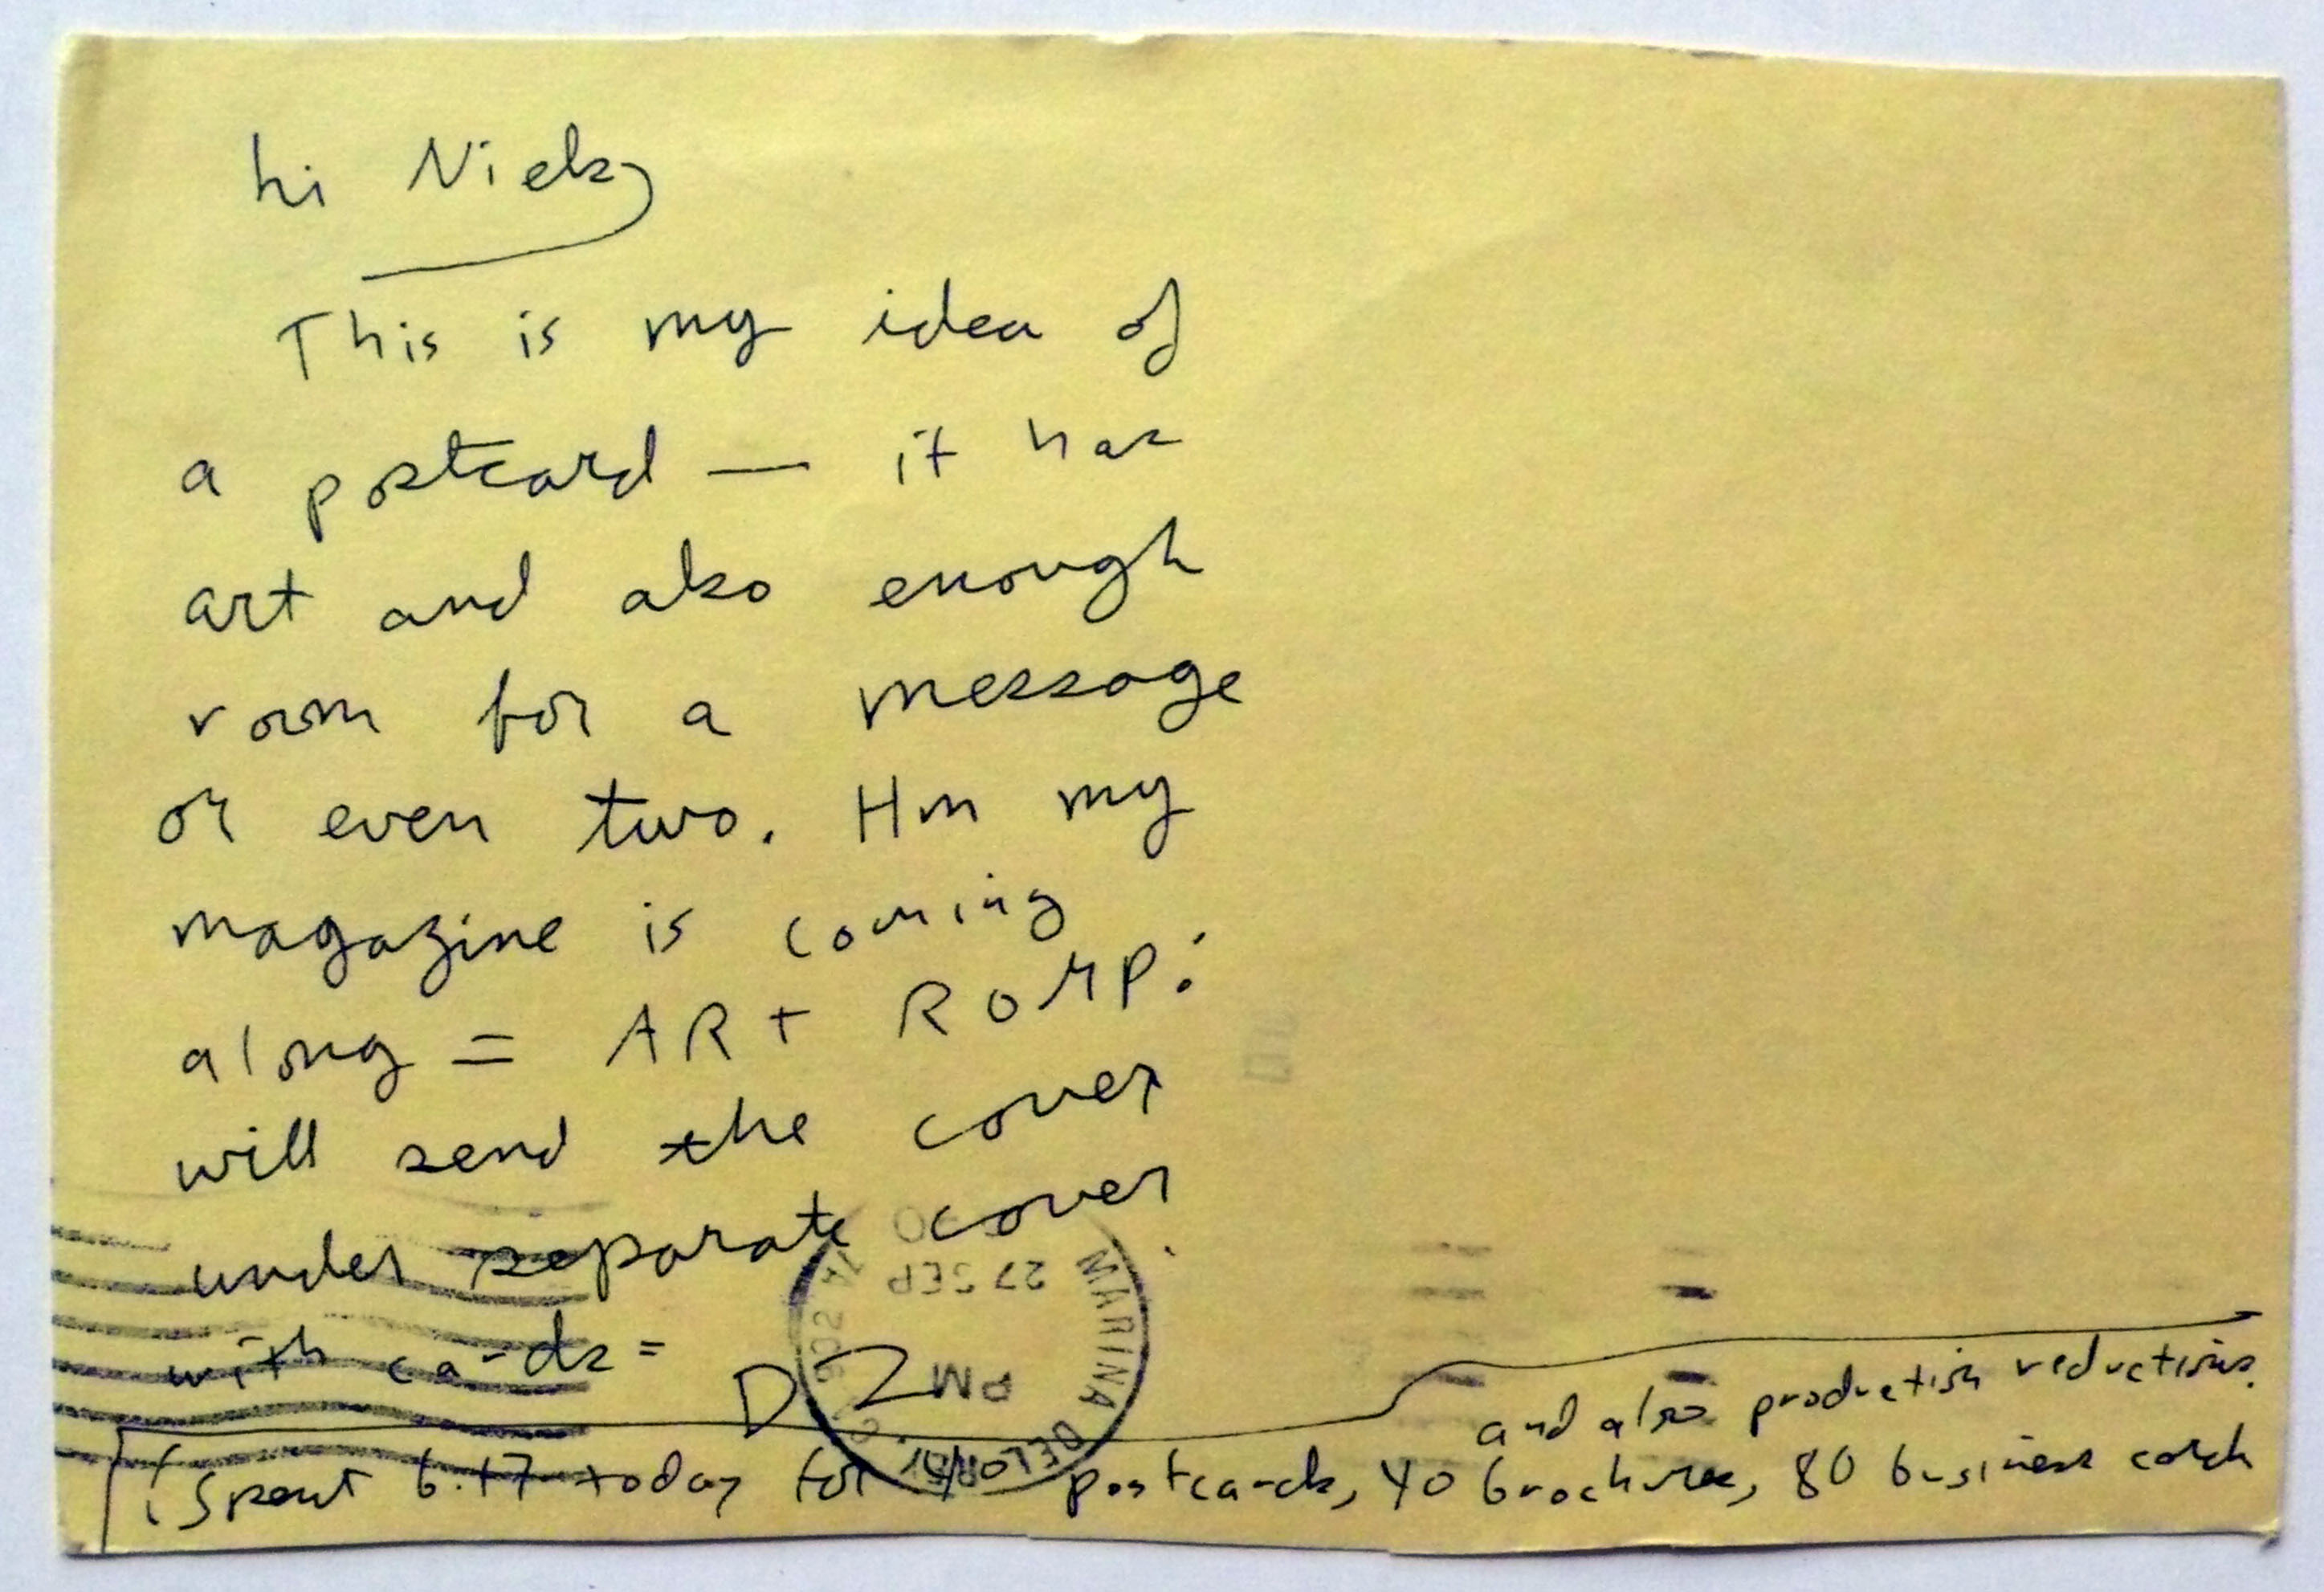 hi Nicky
This is my idea of
a postcard — it has
art and also enough
room for a message
or even two. Hm my
magazine is coming
along = ARt ROMP:
will send the cover
under separate cover.
with cards =
DZ
and also production reductions.
(Spent 6.17 today for 40 postcards, 40 brochures, 80 business cards
MARINA DEL REY
27 SEP
PM